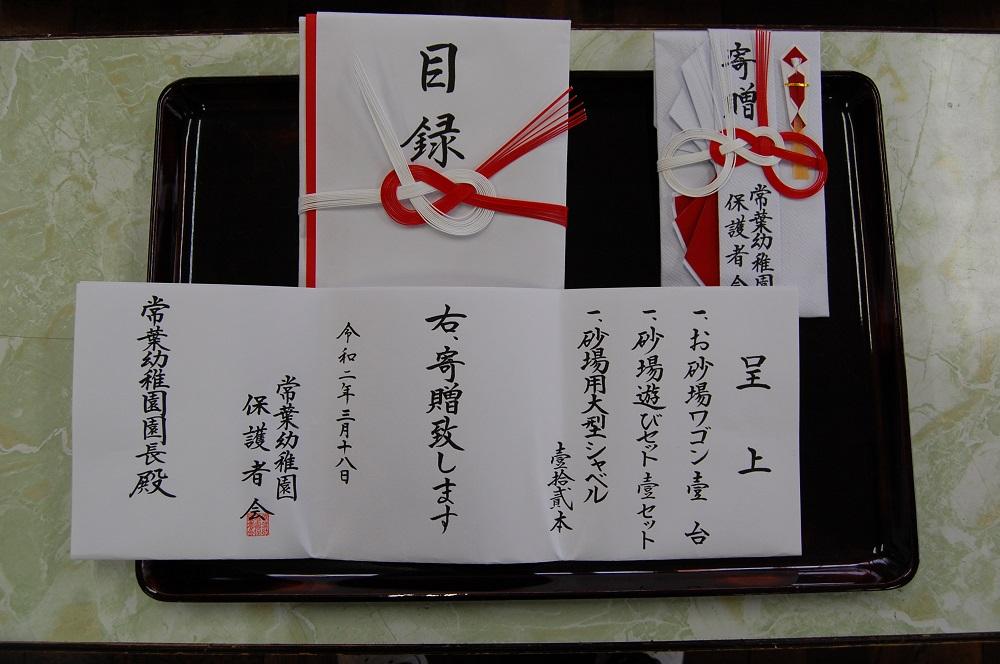 目録
寄贈
常葉幼稚園
保護者会
呈上
一、お砂場ワゴン壹台
一、砂場遊びセット壹セット
一、砂場用大型シャベル
壹拾貳本
右、寄贈致します
令和二年三月十八日
常葉幼稚園
保護者会
常葉幼稚園園長殿